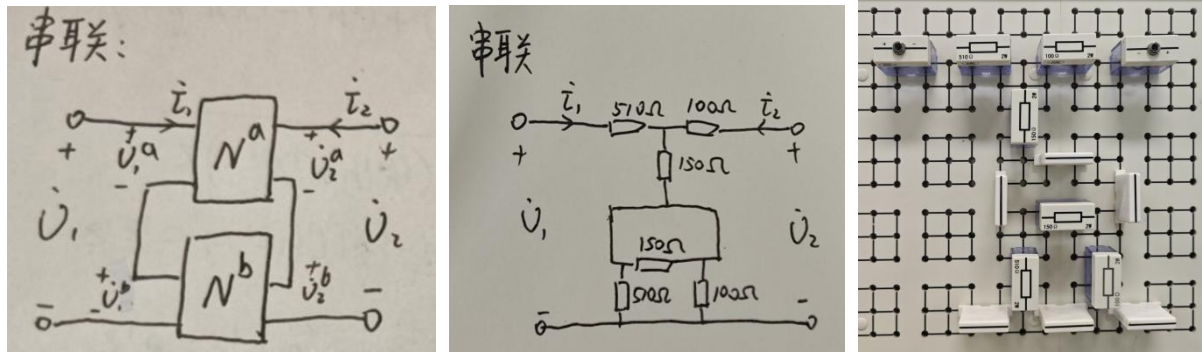 串联:
i̇₁
i̇₂
Nᵃ
+ U̇₁ᵃ -
+ U̇₂ᵃ -
+ U̇₁ -
+ U̇₂ -
Nᵇ
+ U̇₁ᵇ -
+ U̇₂ᵇ
串联
i̇₁ 510Ω 100Ω i̇₂
+ +
150Ω
U̇₁ U̇₂
150Ω
510Ω 100Ω
- -
510Ω 2W
100Ω 2W
150Ω 2W
150Ω 2W
510Ω 2W
2W